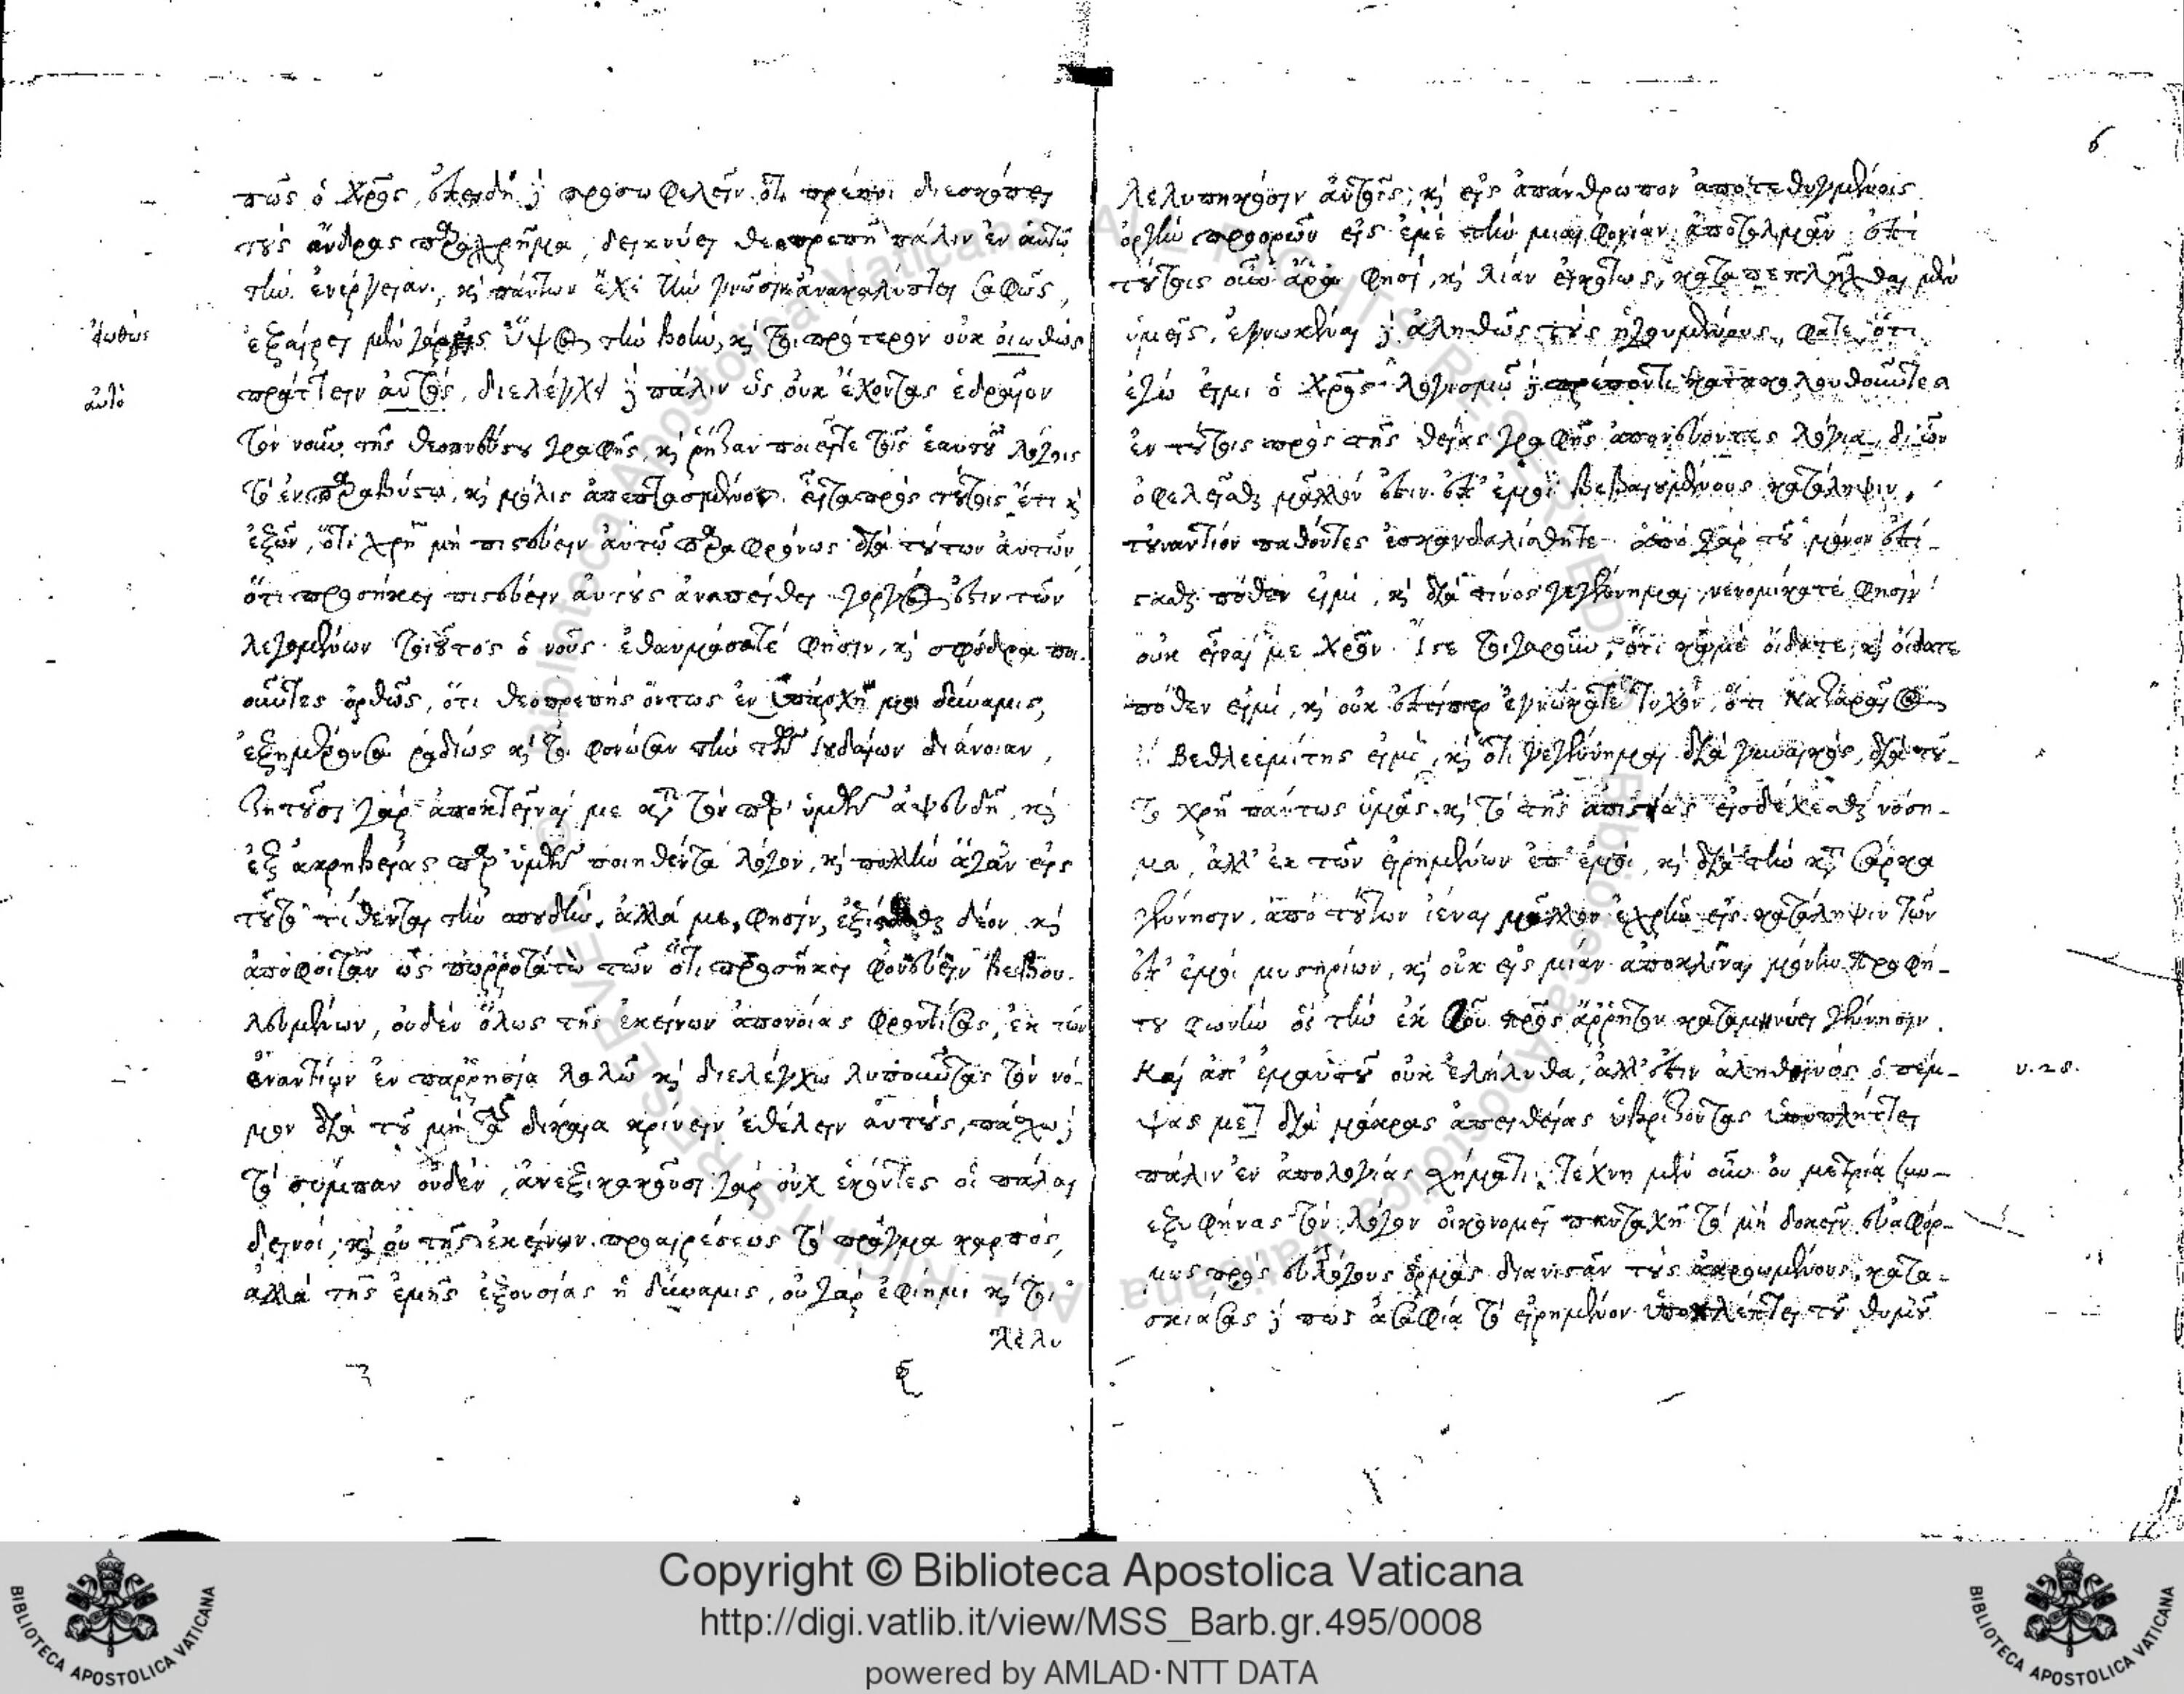 6
πῶς ὁ Χρς, ἐπειδὴ ὲ προσωφελεῖν ὅτι πρέποι διεσκόπει
τοὺς ἄνδρας παραχρῆμα, δεικνύει θεοπρεπῆ πάλιν ἐν αὐτῷ
τὴν ἐνέργειαν, καὶ πάντων ἔχει τὴν γνῶσιν ἀνακαλύπτει σαφῶς,
ἐξαίρει μὲν γὰρ εἰς ὕψος τὴν βοὴν, καὶ τοι πρότερον οὐκ οιωθὼς
εἰωθὼς
πράττειν αὐτοῖς, διελέγχει δὲ πάλιν ὡς οὐκ ἔχοντας ἑδραῖον
αὐτὸ
τὸν νοῦν τῆς θεοπνεύστου γραφῆς, καὶ ῥῆξαν ποιεῖται τοῖς ἑαυτοῦ λόγοις
τὸ ἐκ παραβύστω, καὶ μόλις ἀπεσπασμένον. εἶτα πρὸς τούτοις ἔτι καὶ
ἐξ ὧν, ὅτι χρὴ μὴ πιστεύειν αὐτῷ παραφρόνως διὰ τούτων αὐτῶν
ὅτι προσήκει πιστεύειν αὐτοὺς ἀναπείθει γοργὸς ἐστιν τῶν
λεγομένων τοιοῦτος ὁ νοῦς. ἐθαυμάσατέ φησιν, καὶ σφόδρα ποι-
οῦντες ὀρθῶς, ὅτι θεοπρεπὴς ὄντως ἐν ὑπάρχῃ μοι δύναμις,
ἐξημέρουσα ῥαδίως καὶ τοι φονῶσαν τὴν τῶν Ιουδαίων διάνοιαν,
ζητοῦσι γὰρ ἀποκτεῖναί με κατὰ τὸν παρ' ὑμῶν ἀψευδῆ, καὶ
ἐξ ἀκρηβείας παρ' ὑμῶν ποιηθέντα λόγον, καὶ πολλὴν ἄγαν εἰς
τοῦτο τίθενται τὴν σπουδὴν. ἀλλά με, φησὶν, δέον καὶ
ἀποφοιτᾶν ὡς πωρροτάτω τῶν ὅτι προσήκει φονεύειν βεβου-
λευμένων, οὐδὲν ὅλως τῆς ἐκείνων ἀπονοίας φροντίσας, ἐκ τῶν
ἐναντίων ἐν παρρησίᾳ λαλῶ καὶ διελέγχω λυποῦντας τὸν νό-
μον διὰ τοῦ μὴ τὰ δίκαια κρίνειν ἐθέλειν αὐτοὺς, πάσχω δὲ
τὸ σύμπαν οὐδὲν, ἀνεξικακοῦσι γὰρ οὐχ ἑκόντες οἱ πάλαι
δεινοί, καὶ οὐ τῆς ἐκείνων προαιρέσεως τὸ πρᾶγμα καρπὸς,
ἀλλὰ τῆς ἐμῆς ἐξουσίας ἡ δύναμις, οὐ γὰρ ἐφίημι καὶ τοι
λελυ
λελυπηκόσιν αὐτοῖς, καὶ εἰς ἀπάνθρωπον ἀποτεθηγμένοις
ὀργὴν προορῶν εἰς ἐμὲ τὴν μιαιφονίαν ἀποτολμᾶν. ἐπὶ
τούτοις οὖν ἄρα φησὶ, καὶ λίαν εἰκότως, καταπεπλῆχθαι μὲν
ὑμεῖς, ἐγνωκέναι δὲ ἀληθῶς τοὺς ἡγουμένους, φατὲ, ὅτι
ἐγώ εἰμι ὁ Χρς λογισμῷ δὲ πρέποντι κατακολουθοῦντες
ἐν τούτοις πρὸς τῆς θείας γραφῆς ἀπονεύοντες λόγια, δι' ὧν
ὀφελεῖσθαι μᾶλλόν ἐστιν ἐπ' ἐμοὶ βεβαιουμένους κατάληψιν,
τοὐναντίον παθόντες ἐσκανδαλίσθητε. ἀπὸ γὰρ τοῦ μόνον ἐπί-
στασθαι πόθεν εἰμὶ, καὶ διὰ τίνος γεγέννημαι, νενομίκατέ φησὶν
οὐκ εἶναί με Χρν. Ἴστε τοιγαροῦν, ὅτι κᾀμὲ οἴδατε, καὶ οἴδατε
πόθεν εἰμὶ, καὶ οὐκ ἐπείπερ ἐγνώκατε τυχὸν, ὅτι Ναζαραῖος
Βεθλεεμίτης εἰμὶ, καὶ ὅτι γεγέννημαι διὰ γυναικὸς, διὰ τοῦ-
το χρὴ πάντως ὑμᾶς καὶ τὸ τῆς ἀπιστίας εἰσδέχεσθαι νόση-
μα, ἀλλ' ἐκ τῶν εἰρημένων ἐπ' ἐμοὶ, καὶ διὰ τὴν κατὰ σάρκα
γέννησιν, ἀπὸ τούτων ἰέναι μᾶλλον ἐχρῆν εἰς κατάληψιν τῶν
ἐπ' ἐμοὶ μυστηρίων, καὶ οὐκ εἰς μίαν ἀποκλῖναι μόνην προφή-
του φωνὴν ὃς τὴν ἐκ Θοῦ πρς ἄρρητον καταμηνύει γέννησιν.
Καὶ ἀπ' ἐμαυτοῦ οὐκ ἐλήλυθα, ἀλλ' ἔστιν ἀληθινὸς ὁ πέμ-
v. 28.
ψας με] διὰ μακρᾶς ἀπειθείας ὑβρίζοντας ὑποπλήττει
πάλιν ἐν ἀπολογίας σχήματι. Τέχνῃ μὲν οὖν οὐ μετρίᾳ συν-
εξυφήνας τὸν λόγον οἰκονομεῖ πανταχῆ τὸ μὴ δοκεῖν εὐαφόρ-
μως πρὸς εὐλόγους ὁρμὰς διανιστᾶν τοὺς ἀκροωμένους, κατα-
σκιάσας δὲ πως ἀσαφίᾳ τὸ εἰρημένον ὑποκλέπτει τοῦ θυμοῦ
Copyright © Biblioteca Apostolica Vaticana
http://digi.vatlib.it/view/MSS_Barb.gr.495/0008
powered by AMLAD·NTT DATA
BIBLIOTECA APOSTOLICA VATICANA
BIBLIOTECA APOSTOLICA VATICANA